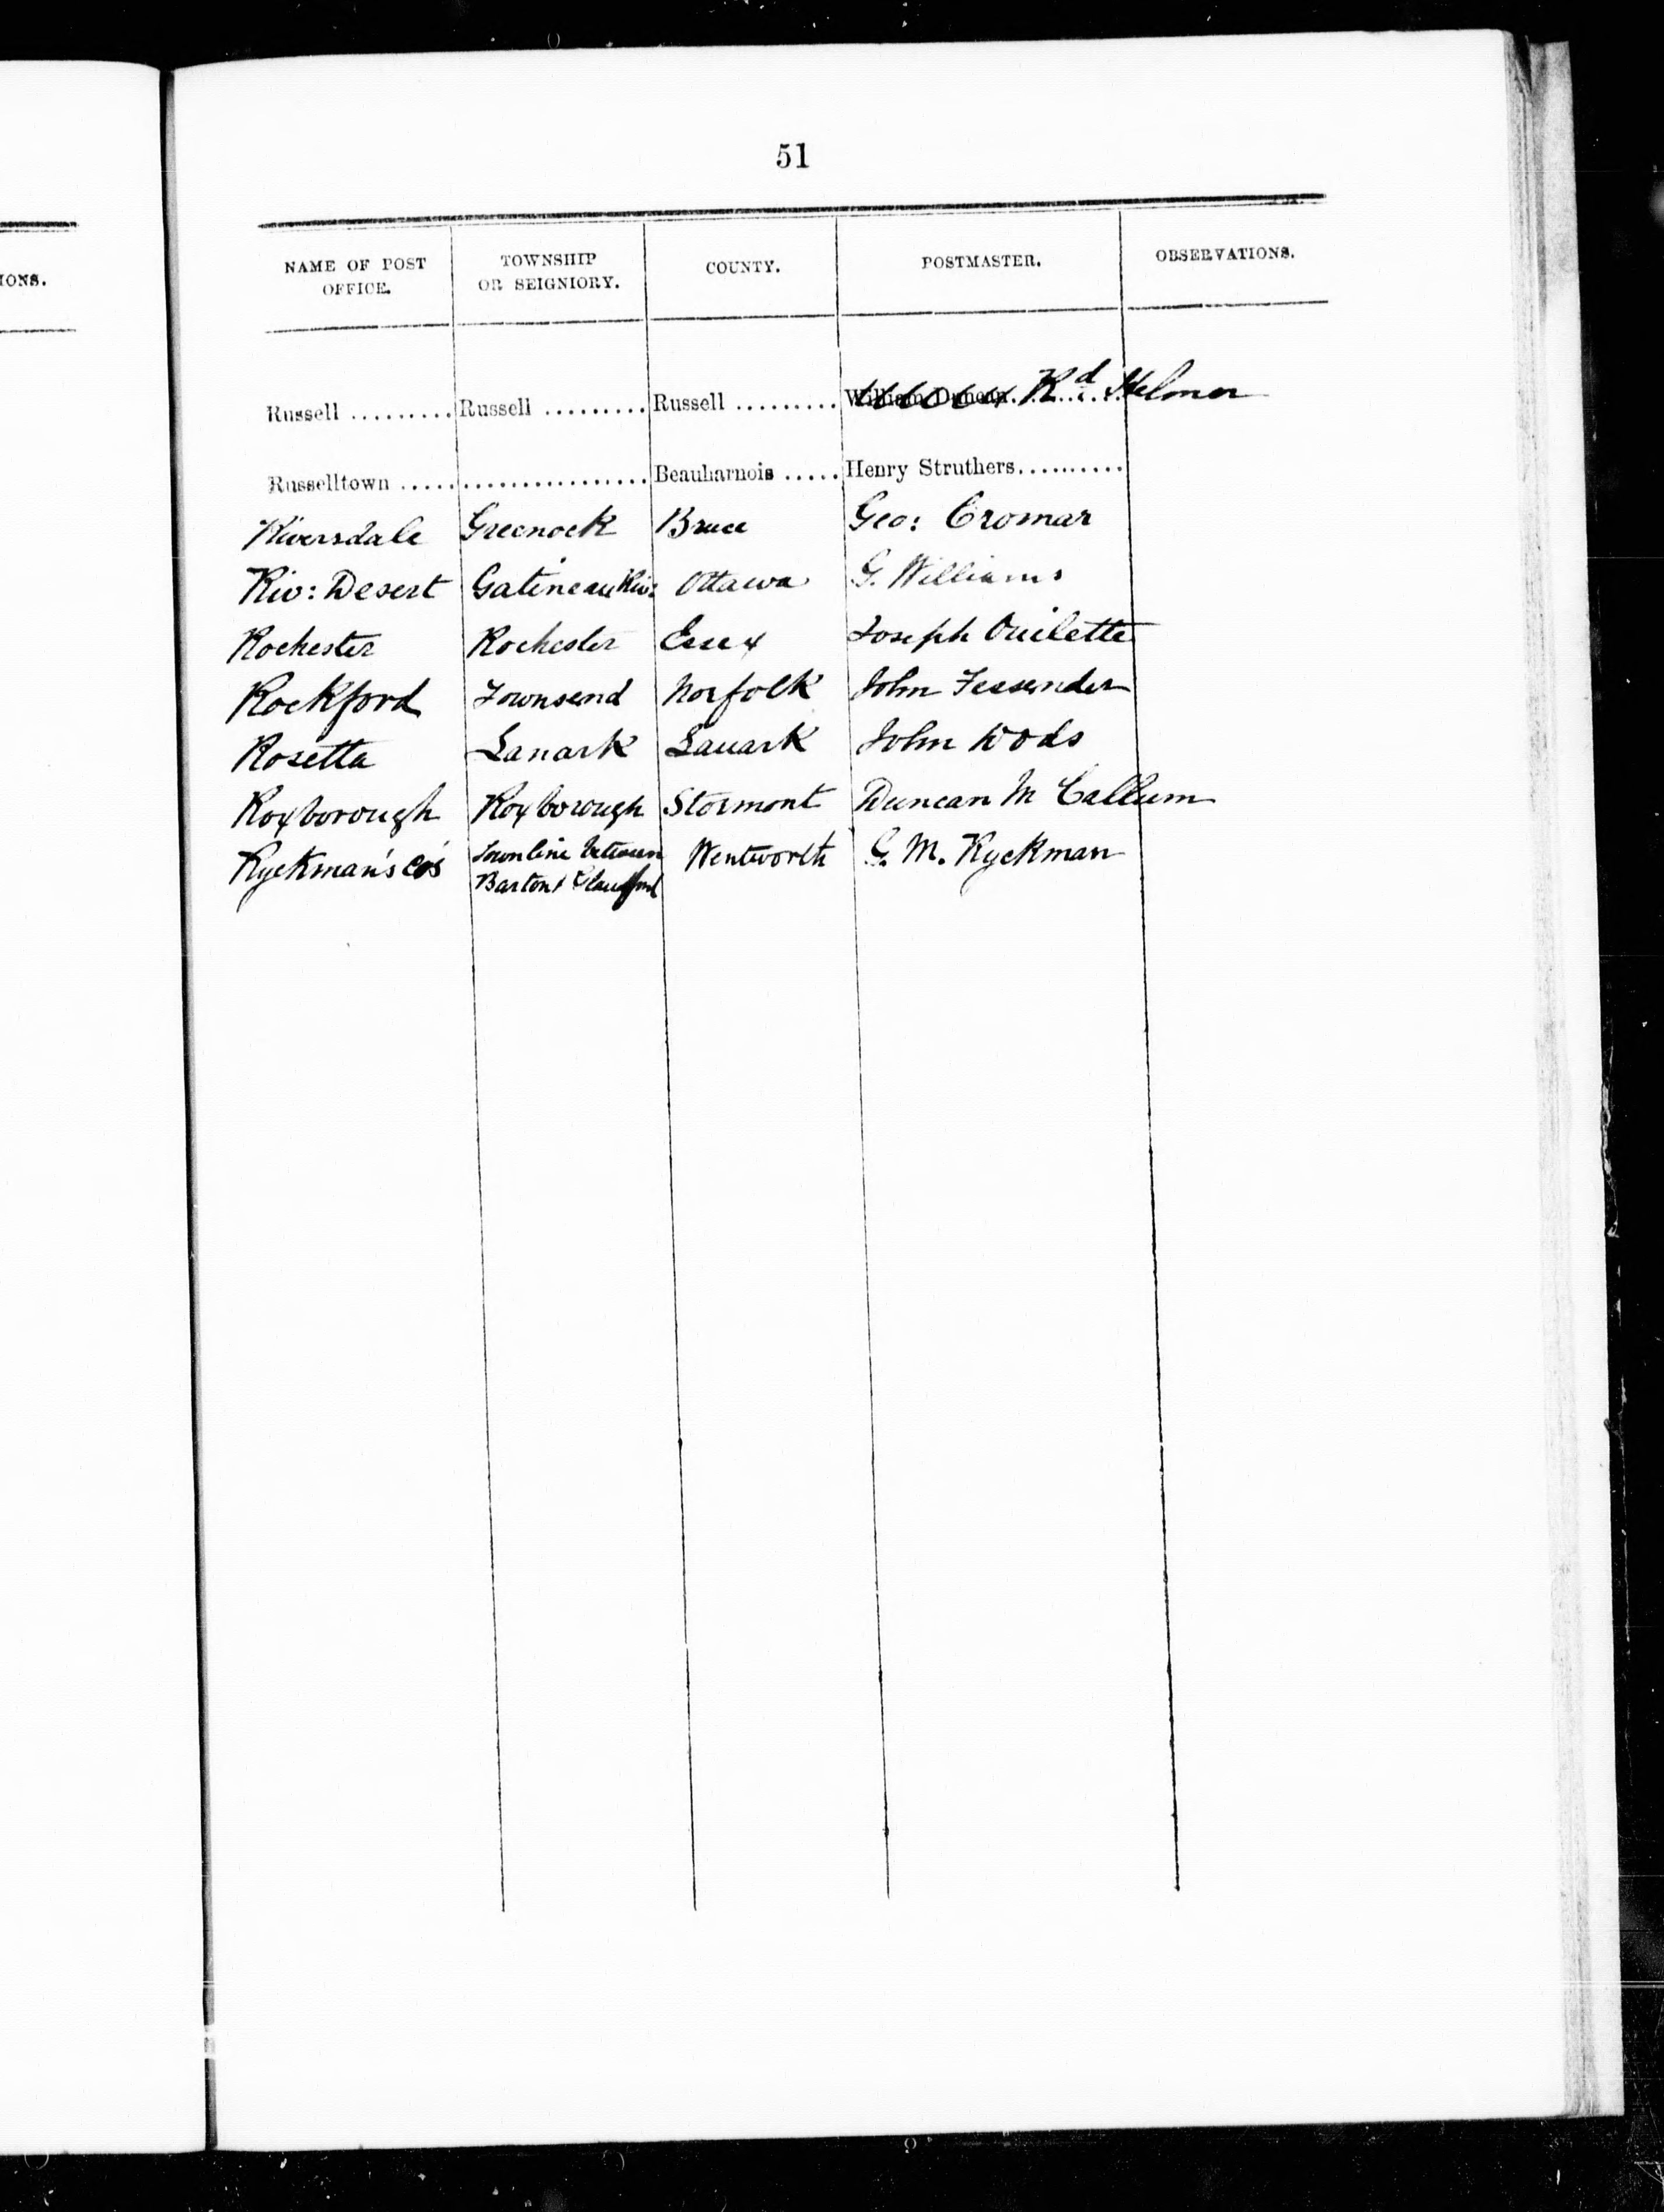 IONS.
51
NAME OF POST OFFICE. TOWNSHIP OR SEIGNIORY. COUNTY. POSTMASTER. OBSERVATIONS.
Russell ......... Russell ......... Russell ......... William Duncan Rd Helmer
Russelltown ..... ................... Beauharnois ..... Henry Struthers..........
Riversdale Greenock Bruce Geo: Cromar
Riv: Desert Gatineau Riv: Ottawa G. Williams
Rochester Rochester Essex Joseph Ouilette
Rockford Townsend Norfolk John Fessenden
Rosetta Lanark Lanark John Woods
Roxborough Roxborough Stormont Duncan Mc Callum
Ryckman's Co's Townline between Wentworth G. M. Ryckman
Barton & Glanford